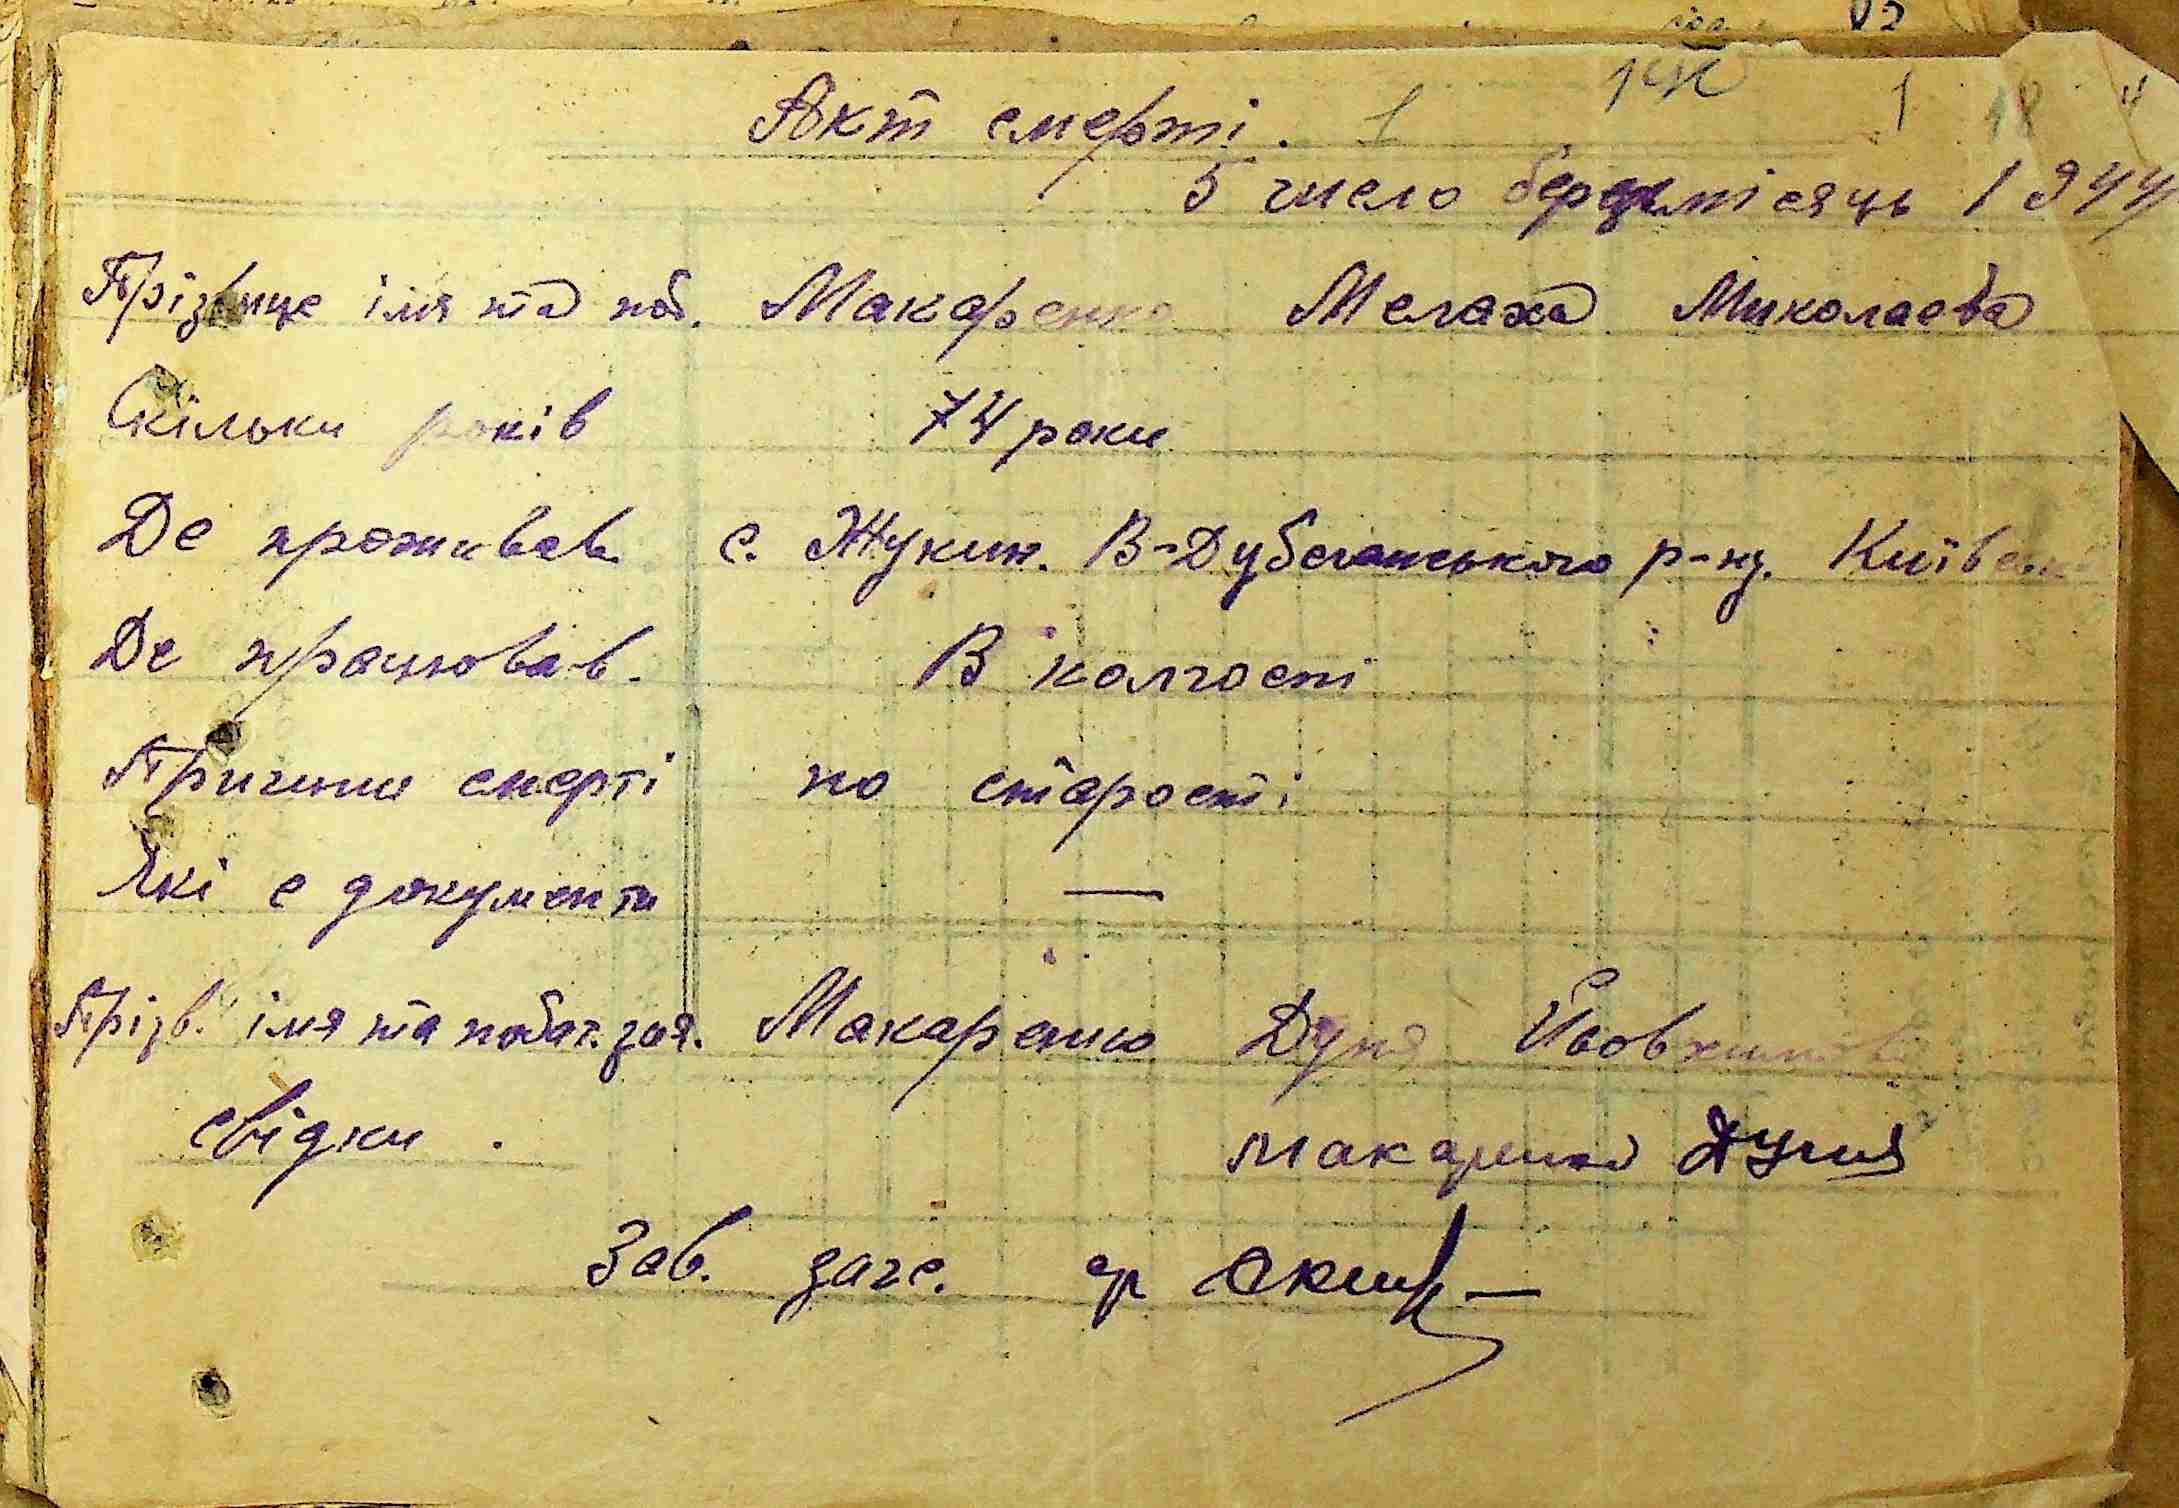 Акт смерті. 1
5 число берез. місяць 1944
Прізвище імя та поб. Макаренко Мелаха Миколаєва
Скільки років 74 роки
Де проживав с. Жукин. В-Дубечанського р-ну. Київськ
Де працював. В колгоспі
Причини смерті по старості
Які є документи —
Прізв. імя та побат. зая. Макаренко Дуня Йовхимова
свідки. Макаренко Дуня
Зав. загс.